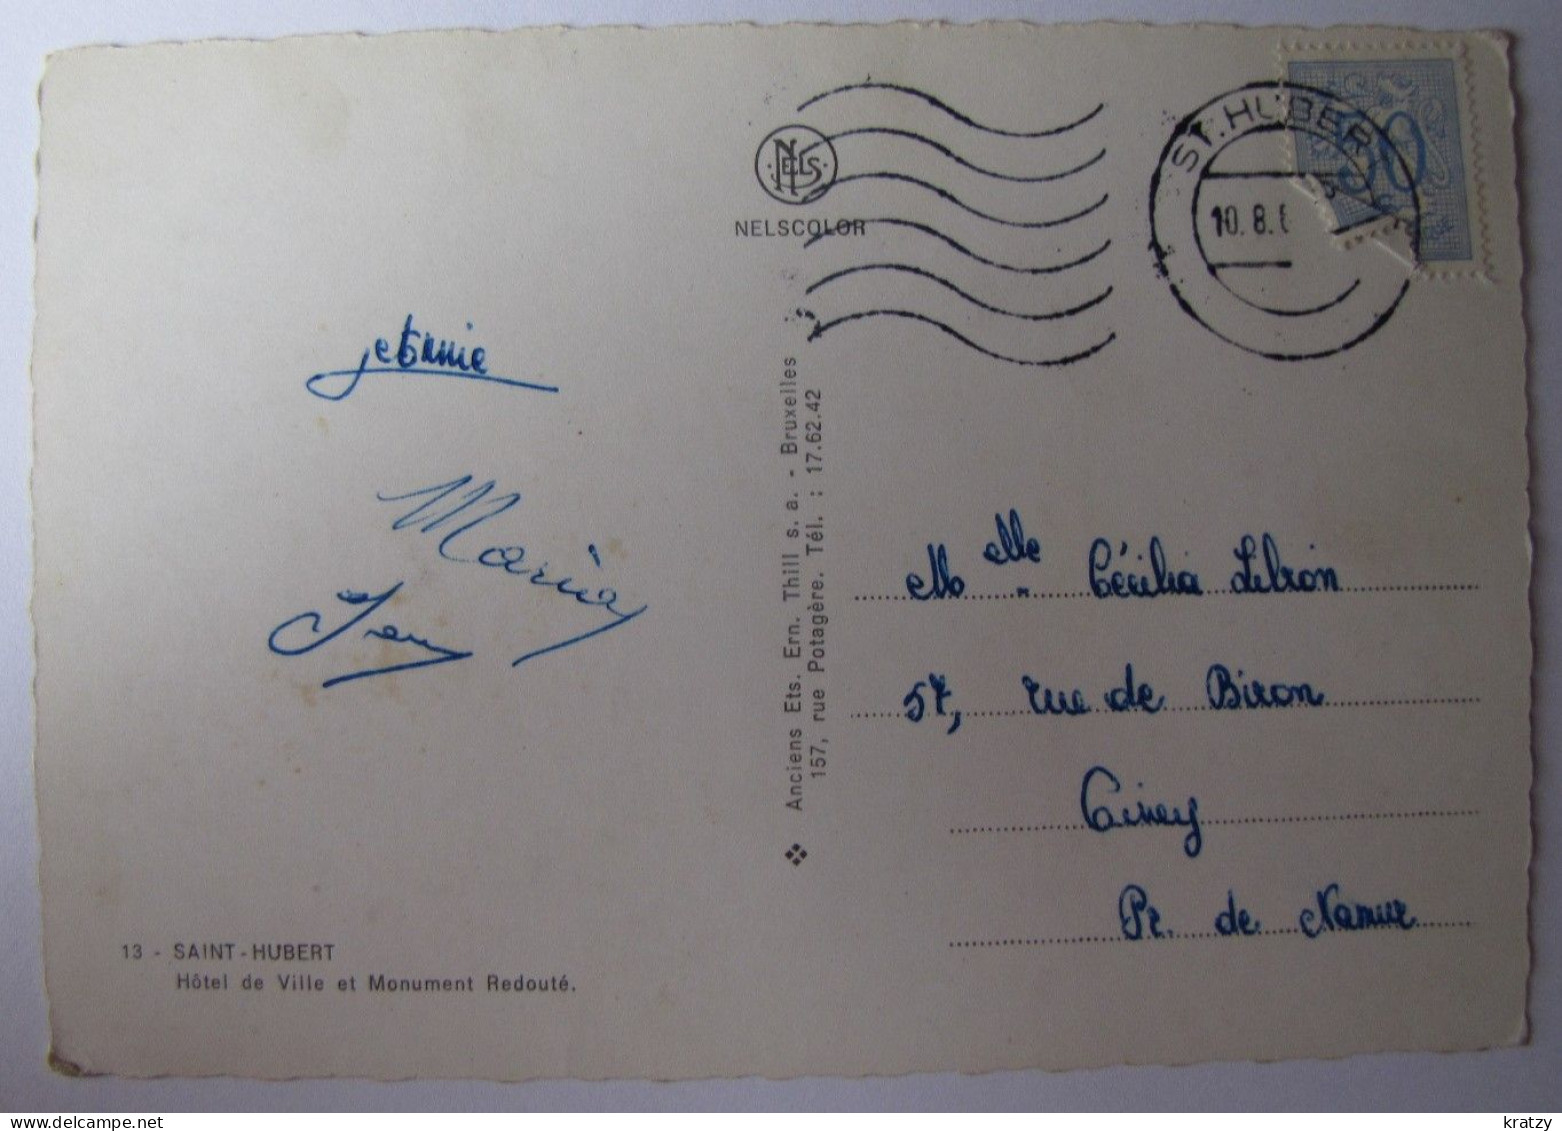 ST. HUBERT
10.8.
50
NELS
NELSCOLOR
Maria
Melle Cécilia Libion
57, rue de Biron
Ciney
Pr. de Namur
Anciens Ets. Ern. Thill s. a. - Bruxelles
157, rue Potagère. Tél. : 17.62.42
13 - SAINT-HUBERT
Hôtel de Ville et Monument Redouté.
kratzy